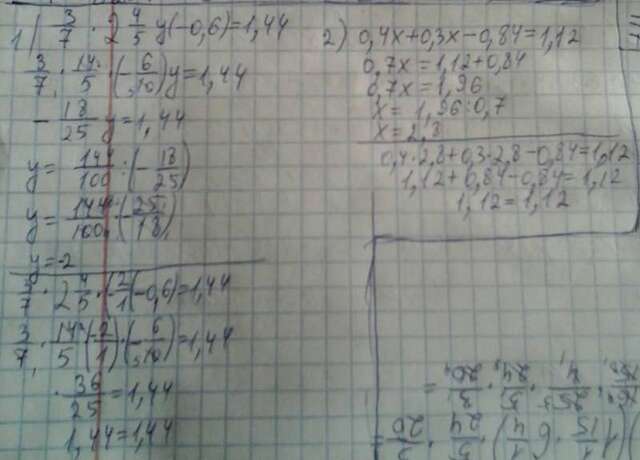 1) 3/7 · 2 4/5 y(-0,6)=1,44
3/7 · 14/5 · (-6/10)y=1,44
-18/25 y=1,44
y=144/100:(-18/25)
y=144/100·(-25/18)
y=-2
3/7 · 2 4/5 · (-2/1)(-0,6)=1,44
3/7 · 14/5 (-2/1) · (-6/10)=1,44
36/25=1,44
1,44=1,44
2) 0,4x+0,3x-0,84=1,12
0,7x=1,12+0,84
0,7x=1,96
x=1,96:0,7
x=2,8
0,4·2,8+0,3·2,8-0,84=1,12
1,12+0,84-0,84=1,12
1,12=1,12